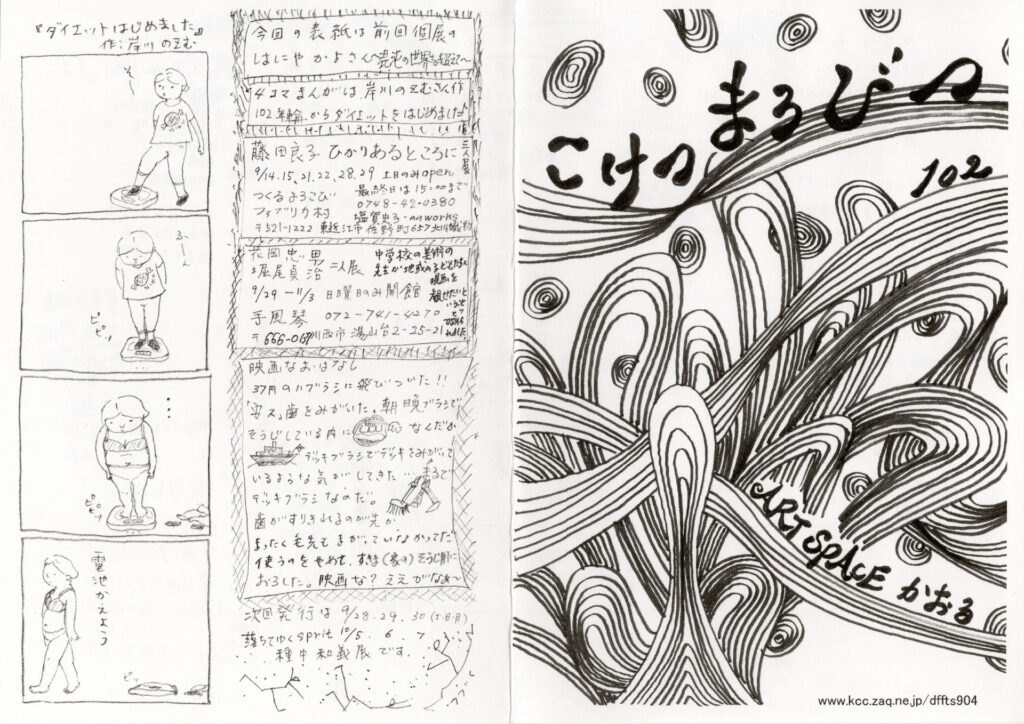 『ダイエットはじめました』
作:岸川のえむ
そ〜
ふーん
ピピッ
・・・
ピピッ
電池かえよう
ピッ
今回の表紙は前回個展の
はしにやかよさん〜混沌の世界を超えて〜
4コマまんがは、岸川のえむさん作
102年輪からダイエットをはじめました
藤田良子 ひかりあるところに
9/14.15.21.22.28.29 土日のみopen
最終日は15:00まで
つくるよろこび
0748-42-0380
ファブリカ村
〒521-1222 東近江市佐野町657
花岡忠男
堀尾貞治 二人展
中学校の美術の
9/29〜11/3 日曜日のみ開館
手風琴 072-741-4270
川西市湯山台2-25-21
映画なお・はなし
37円のハブラシに飛びついた!!
「安ス」歯をみがいた。朝晩ブラシで
そうじしている内に なんだか
デッキブラシでデッキをみがいて
いるような気がしてきた…まるで
デッキブラシなのだ。
歯がすりきれるのが先か
まったく毛先もまがっていなかってた
使うのをやめて、すきま(家の)そうじ用に
おろした。映画な?ええがなぁ〜
次回発行は 9/28.29.30(土・日・月)
落ちてゆくsprit 10/5.6.7
種中和義展です.
こけのまるびの
102
ART SPACE かおる
www.kcc.zaq.ne.jp/dffts904